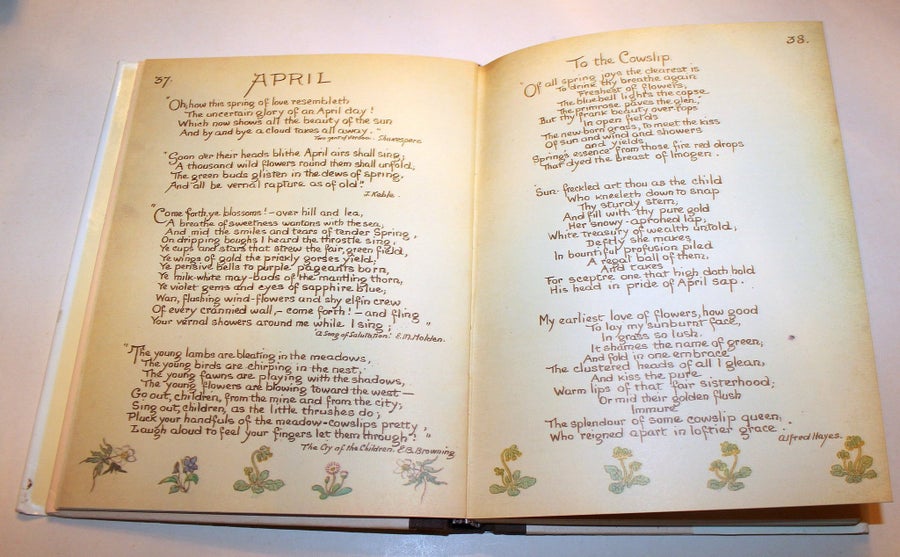 37.
APRIL
"Oh, how this spring of love resembleth
The uncertain glory of an April day!
Which now shows all the beauty of the sun
And by and bye a cloud takes all away."
Two gent of Verona. - Shakespere
"Soon o'er their heads blithe April airs shall sing;
A thousand wild flowers round them shall unfold,
The green buds glisten in the dews of spring.
And all be vernal rapture as of old."
J. Keble.
"Come forth, ye blossoms! - over hill and lea,
A breathe of sweetness wantons with the sea;
And mid the smiles and tears of tender Spring,
On dripping boughs I heard the throstle sing;
Ye cups and stars that strew the fair, green field,
Ye wings of gold the prickly gorses yield;
Ye pensive bells to purple pageants born,
Ye milk-white may-buds of the mantling thorn,
Ye violet gems and eyes of sapphire blue,
Wan, flushing wind-flowers and shy elfin crew
Of every crannied wall, - come forth! - and fling
Your vernal showers around me while I sing;"
"A Song of Salutation". E. M. Holden.
"The young lambs are bleating in the meadows,
The young birds are chirping in the nest,
The young fawns are playing with the shadows,
The young flowers are blowing toward the west —
Go out, children, from the mine and from the city;
Sing out, children, as the little thrushes do;
Pluck your handfuls of the meadow-cowslips pretty,
Laugh aloud to feel your fingers let them through!"
The Cry of the Children. E. B. Browning
38.
To the Cowslip.
"Of all spring joys the dearest is
To drink thy breathe again
Freshest of flowers,
The bluebell lights the copse
The primrose paves the glen,
But thy frank beauty over-tops
In open fields
The new-born grass, to meet the kiss
Of sun and wind and showers
and yields
Springs essence from those fire red drops
That dyed the breast of Imogen.
Sun-freckled art thou as the child
Who kneeleth down to snap
Thy sturdy stem,
And fill with thy pure gold
Her snowy-aproned lap;
White treasury of wealth untold;
Deftly she makes
In bountiful profusion piled
A regal ball of them,
And takes
For sceptre one that high doth hold
His head in pride of April sap.
My earliest love of flowers, how good
To lay my sunburnt face,
In grass so lush.
It shames the name of green;
And fold in one embrace
The clustered heads of all I glean,
And kiss the pure
Warm lips of that fair sisterhood;
Or mid their golden flush
Immure
The splendour of some cowslip queen,
Who reigned apart in loftier grace..
Alfred Hayes.